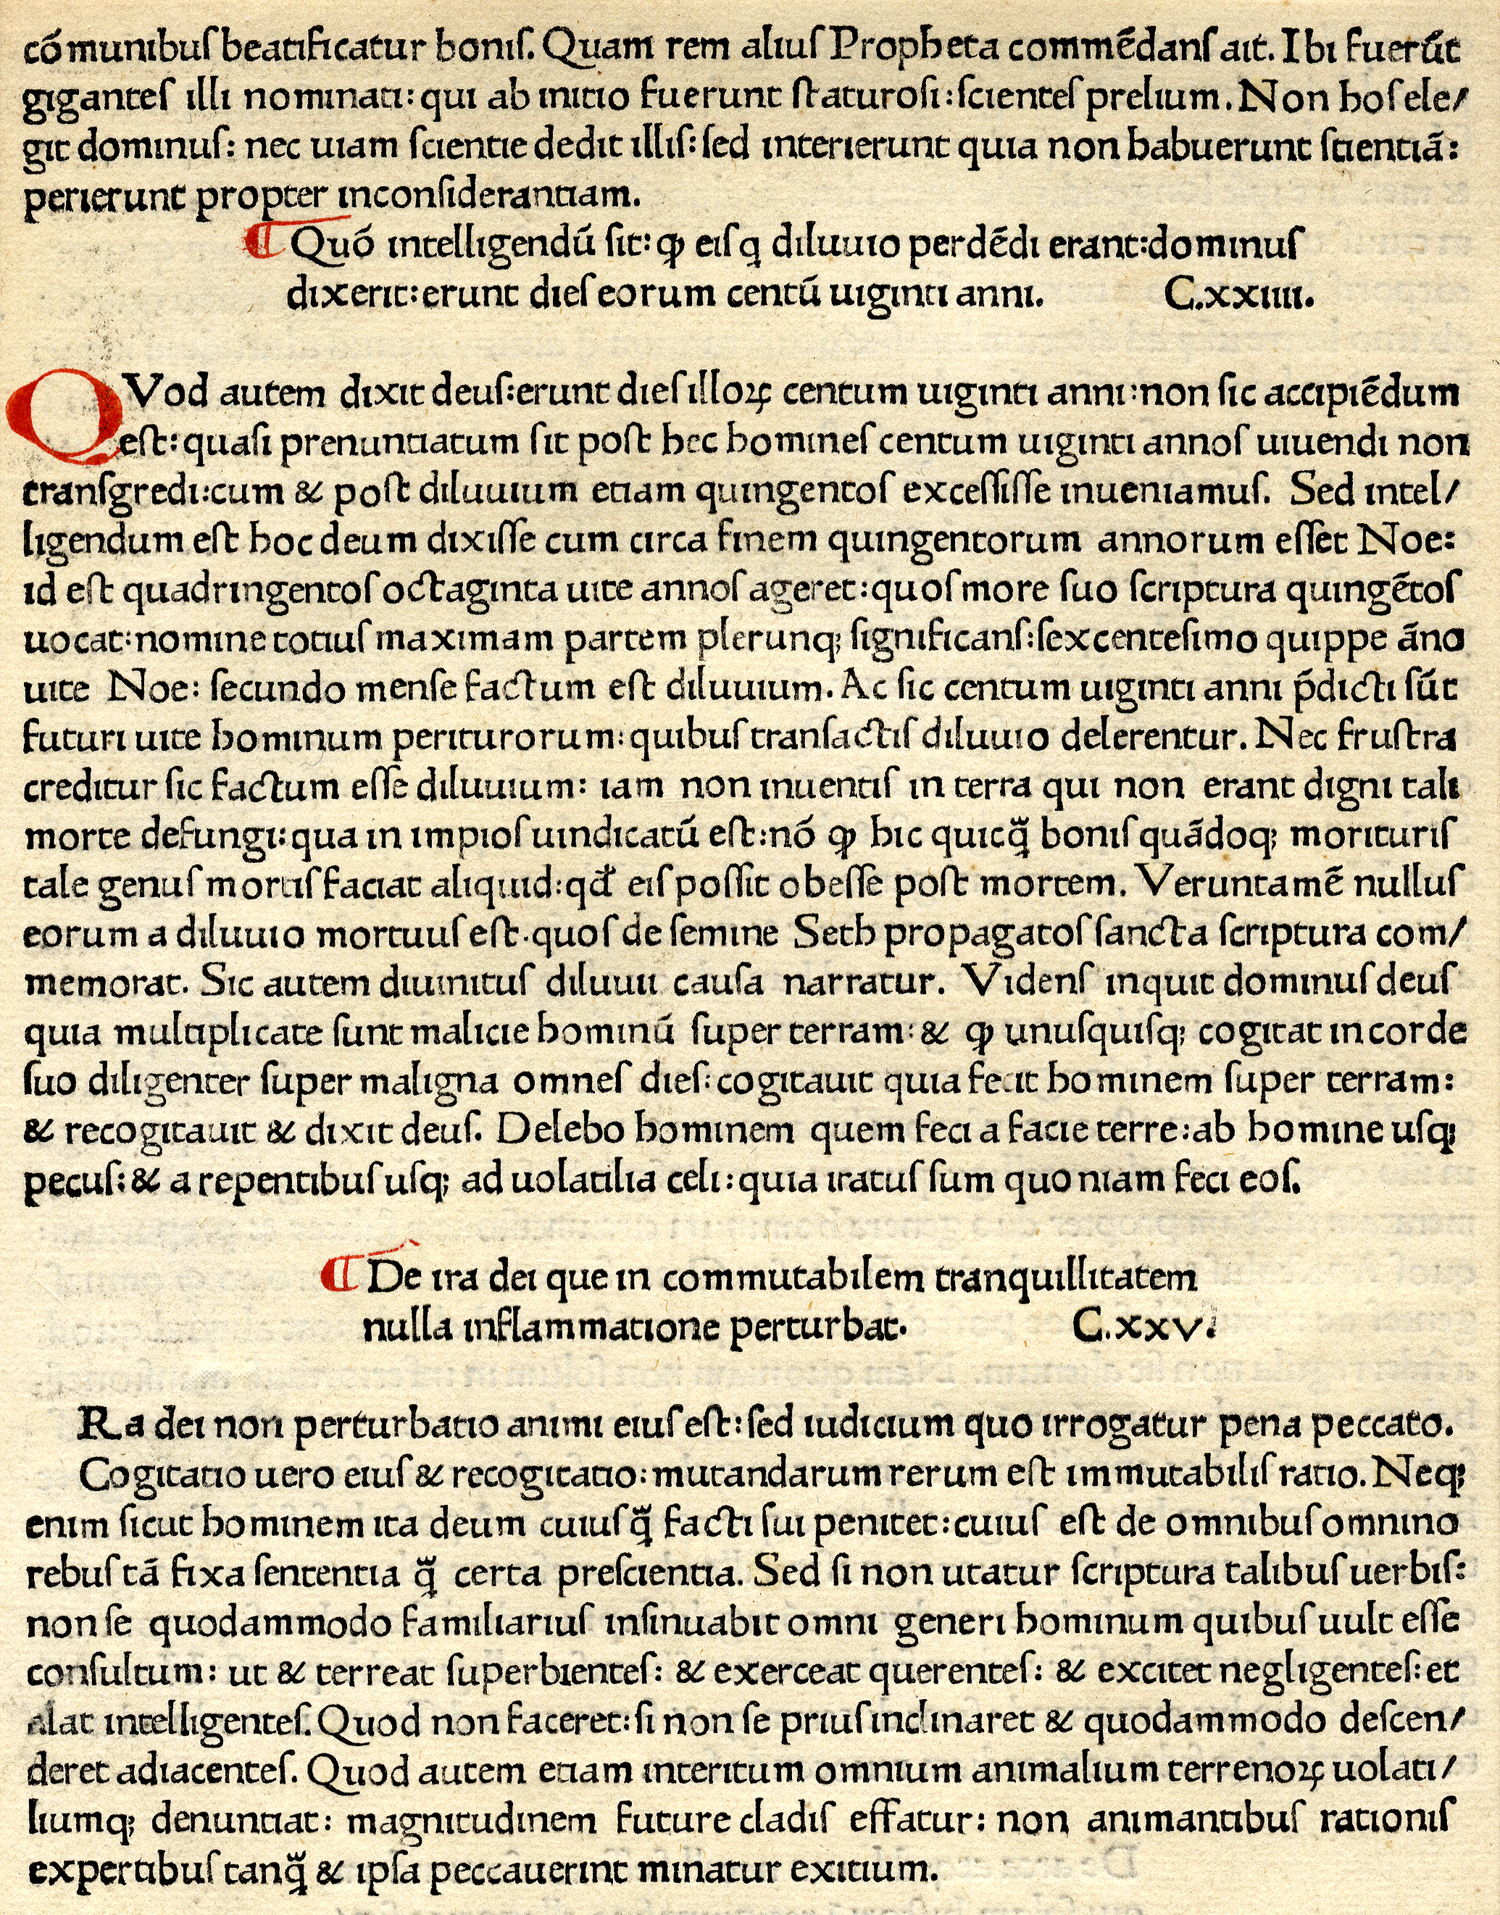 cōmunibuſ beatificatur boniſ. Quam rem aliuſ Propheta commēdanſ ait. Ibi fuerūt
giganteſ illi nominati: qui ab initio fuerunt ſtaturoſi: ſcienteſ prelium. Non hoſ ele/
git dominuſ: nec uiam ſcientie dedit illiſ: ſed interierunt quia non habuerunt ſcientiā:
perierunt propter inconſiderantiam.
¶ Quō intelligendū ſit: ꝙ eiſ q diluuio perdēdi erant: dominuſ
dixerit: erunt dieſ eorum centū uiginti anni. C.xxiiii.
QVod autem dixit deuſ: erunt dieſ illoꝝ centum uiginti anni: non ſic accipiēdum
eſt: quaſi prenuntiatum ſit poſt hec homineſ centum uiginti annoſ uiuendi non
tranſgredi: cum & poſt diluuium etiam quingentoſ exceſſiſſe inueniamuſ. Sed intel/
ligendum eſt hoc deum dixiſſe cum circa finem quingentorum annorum eſſet Noe:
id eſt quadringentoſ octaginta uite annoſ ageret: quoſ more ſuo ſcriptura quingētoſ
uocat: nomine totiuſ maximam partem plerunq; ſignificanſ: ſexcenteſimo quippe āno
uite Noe: ſecundo menſe factum eſt diluuium. Ac ſic centum uiginti anni p̄dicti ſūt
futuri uite hominum periturorum: quibuſ tranſactiſ diluuio delerentur. Nec fruſtra
creditur ſic factum eſſe diluuium: iam non inuentiſ in terra qui non erant digni tali
morte defungi: qua in impioſ uindicatū eſt: nō ꝙ hic quicq̃ boniſ quādoq; morituriſ
tale genuſ mortiſ faciat aliquid: qđ eiſ poſſit obeſſe poſt mortem. Veruntamē nulluſ
eorum a diluuio mortuuſ eſt. quoſ de ſemine Seth propagatoſ ſancta ſcriptura com/
memorat. Sic autem diuinituſ diluuii cauſa narratur. Videnſ inquit dominuſ deuſ
quia multiplicate ſunt malicie hominū ſuper terram: & ꝙ unuſquiſq; cogitat in corde
ſuo diligenter ſuper maligna omneſ dieſ: cogitauit quia fecit hominem ſuper terram:
& recogitauit & dixit deuſ. Delebo hominem quem feci a facie terre: ab homine uſq;
pecuſ: & a repentibuſ uſq; ad uolatilia celi: quia iratuſ ſum quoniam feci eoſ.
¶ De ira dei que in commutabilem tranquillitatem
nulla inflammatione perturbat. C.xxv.
Ra dei non perturbatio animi eiuſ eſt: ſed iudicium quo irrogatur pena peccato.
Cogitatio uero eiuſ & recogitatio: mutandarum rerum eſt immutabiliſ ratio. Neq;
enim ſicut hominem ita deum cuiuſq̃ facti ſui penitet: cuiuſ eſt de omnibuſ omnino
rebuſ tā fixa ſententia q̃ certa preſcientia. Sed ſi non utatur ſcriptura talibuſ uerbiſ:
non ſe quodammodo familiariuſ inſinuabit omni generi hominum quibuſ uult eſſe
conſultum: ut & terreat ſuperbienteſ: & exerceat querenteſ: & excitet negligenteſ: et
alat intelligenteſ. Quod non faceret: ſi non ſe priuſ inclinaret & quodammodo deſcen/
deret adiacenteſ. Quod autem etiam interitum omnium animalium terrenoꝝ uolati/
liumq; denuntiat: magnitudinem future cladiſ effatur: non animantibuſ rationiſ
expertibuſ tanq̃ & ipſa peccauerint minatur exitium.